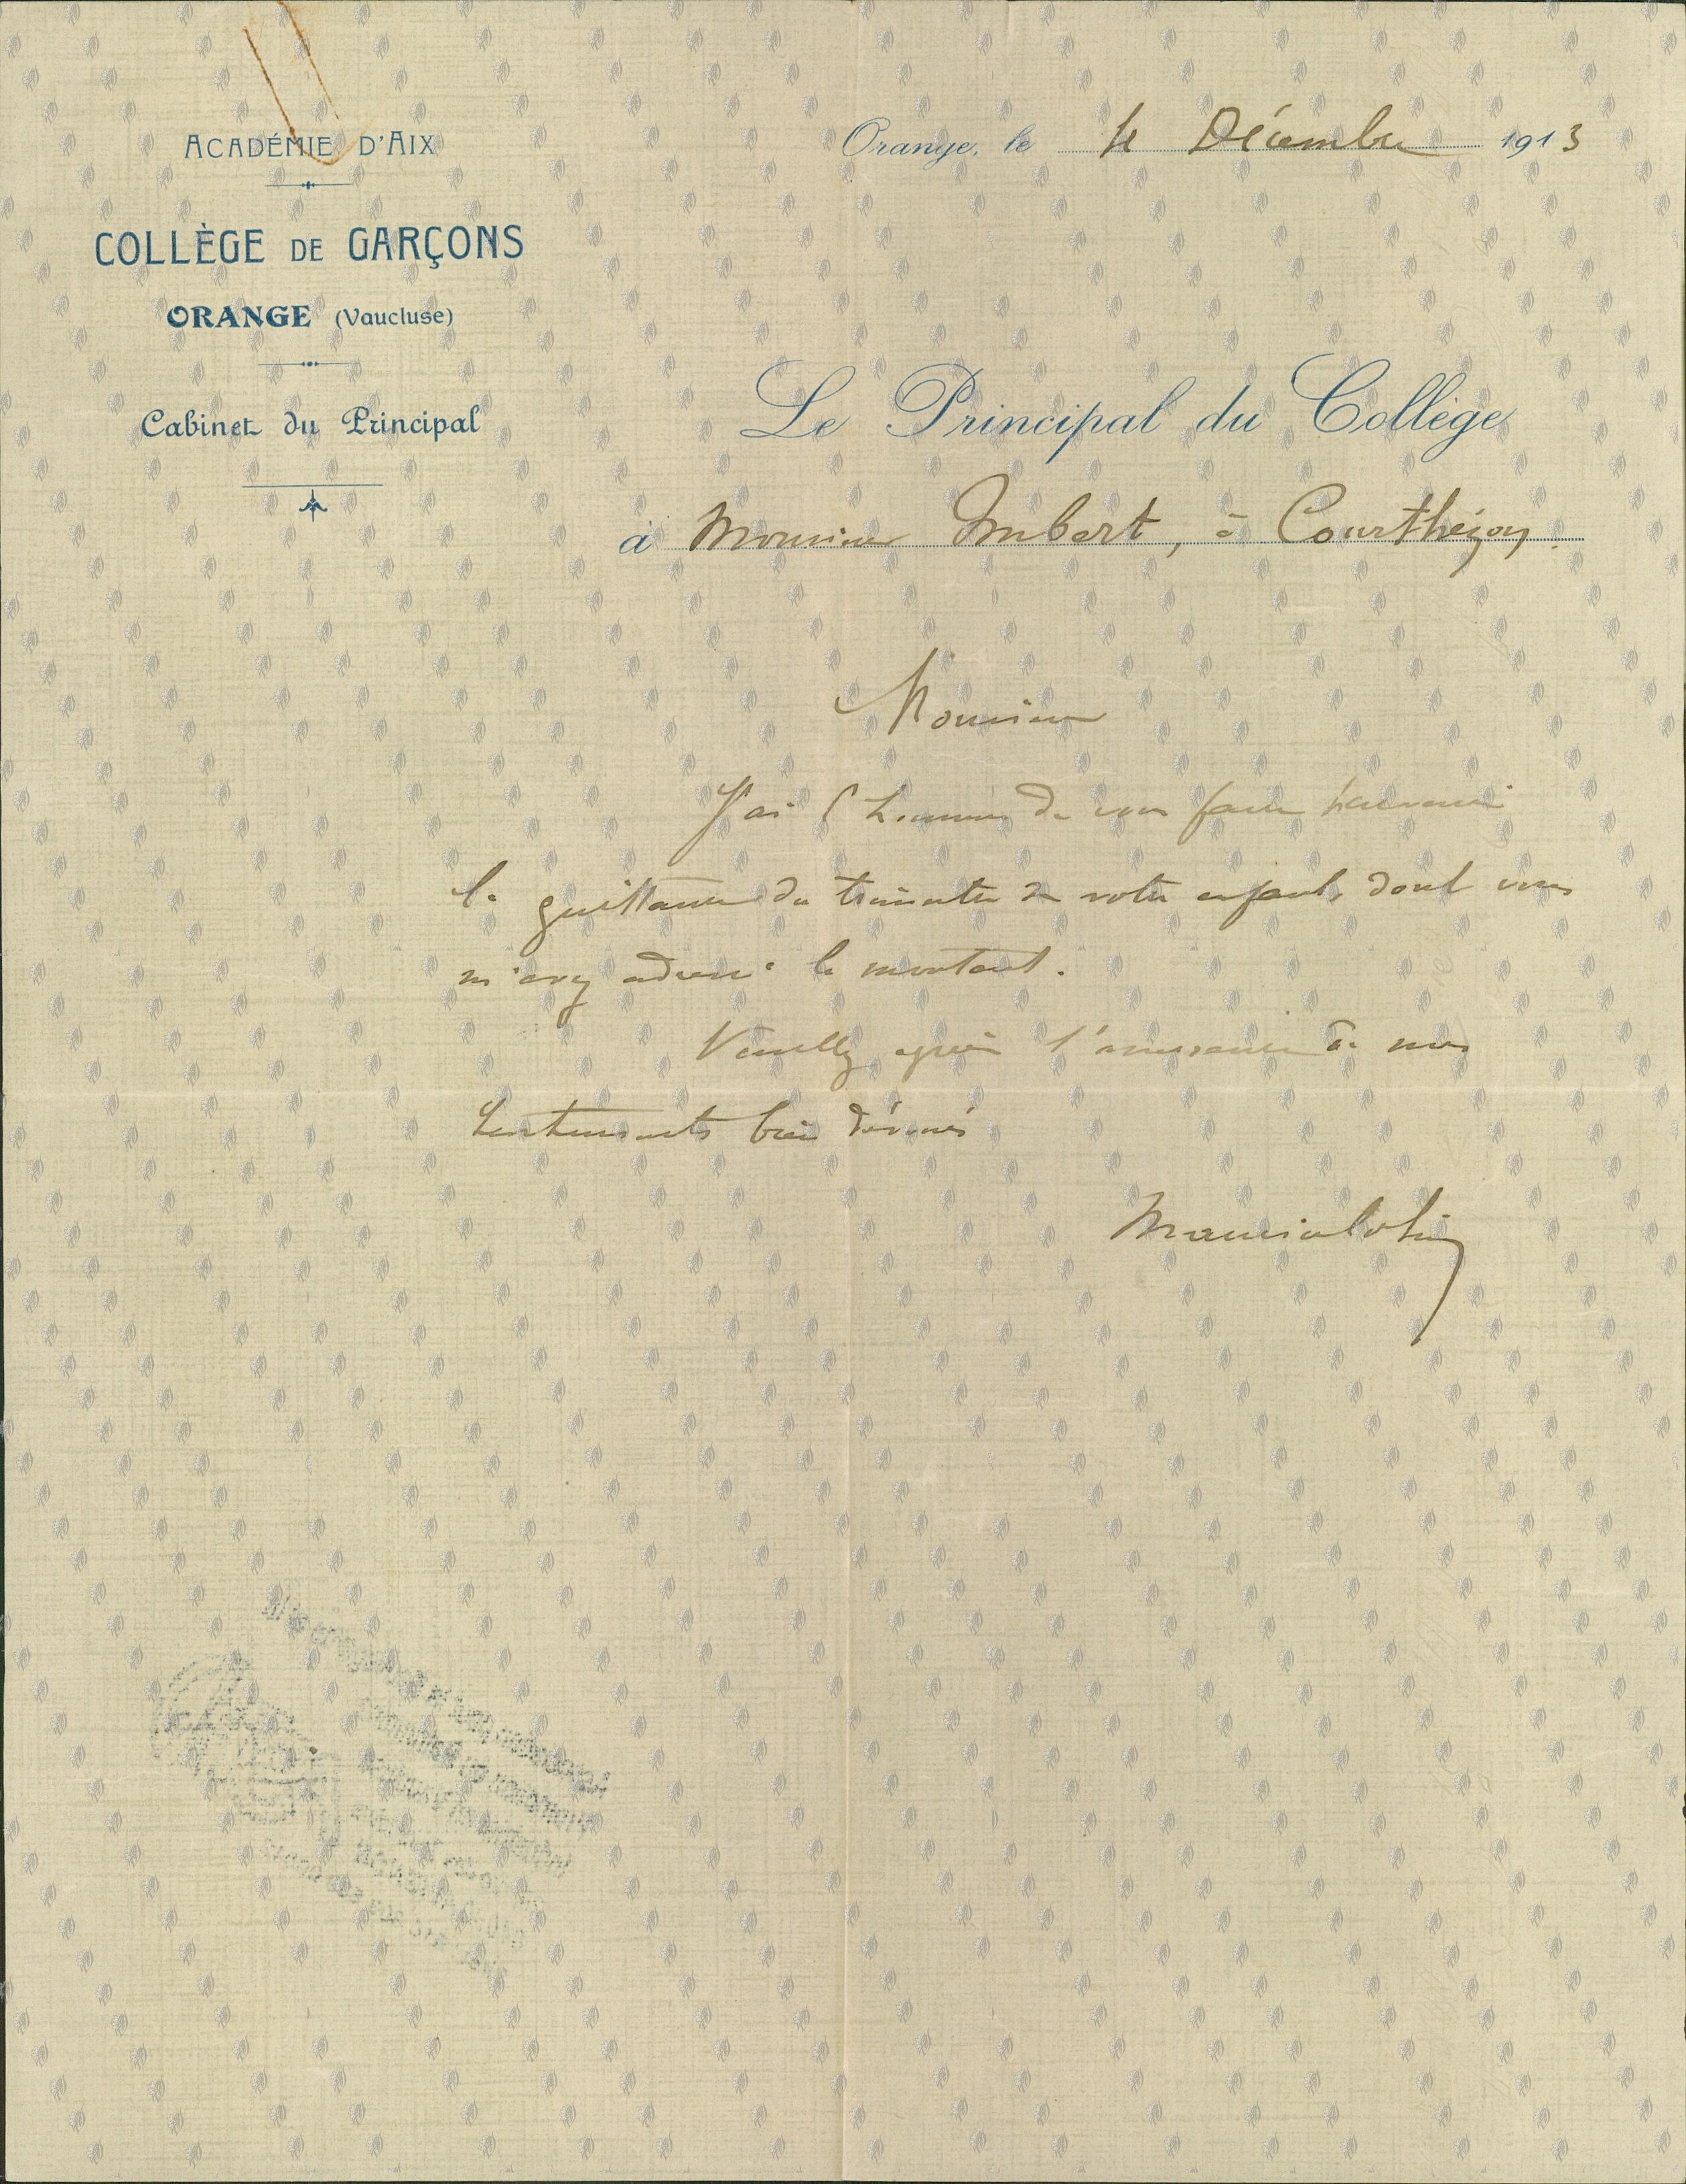 ACADÉMIE D'AIX
COLLÈGE DE GARÇONS
ORANGE (Vaucluse)
Cabinet du Principal
Orange, le 4 Décembre 1913
Le Principal du Collège
à Monsieur Imbert, à Courthézon.
Monsieur
J'ai l'honneur de vous faire parvenir
la quittance du trimestre de votre enfant, dont vous
m'avez adressé le montant.
Veuillez agréer l'assurance de mes
sentiments bien dévoués